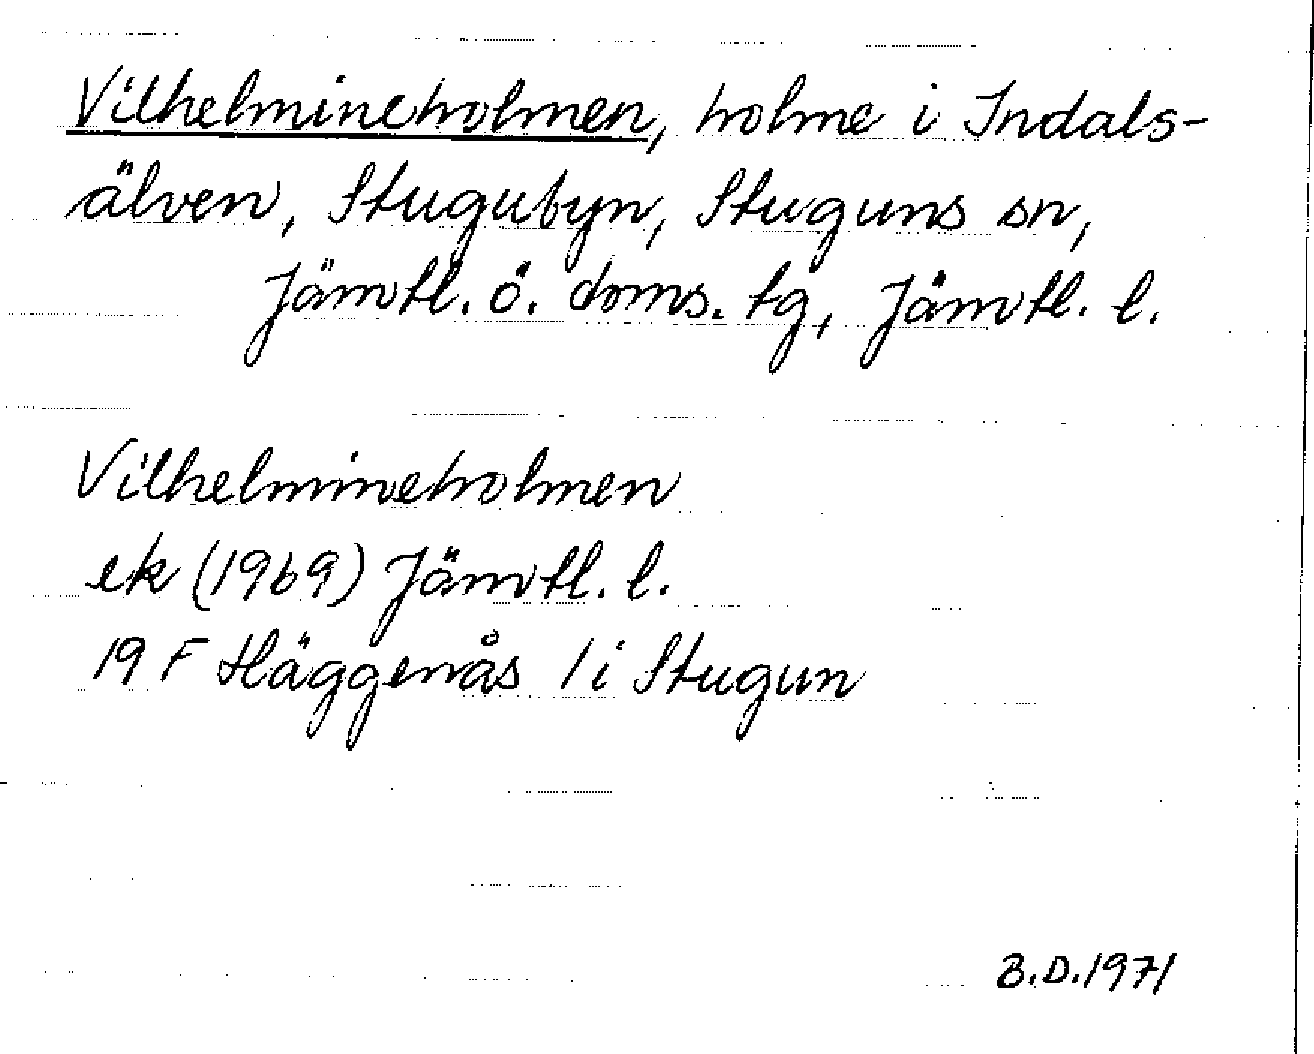 Vilhelmineholmen, holme i Indals-
älven, Stugubyn, Stuguns sn,
Jämtl. ö. doms. tg, Jämtl. l.
Vilhelmineholmen
ek (1969) Jämtl. l.
19 F Häggenås / i Stugun
B.D.1971